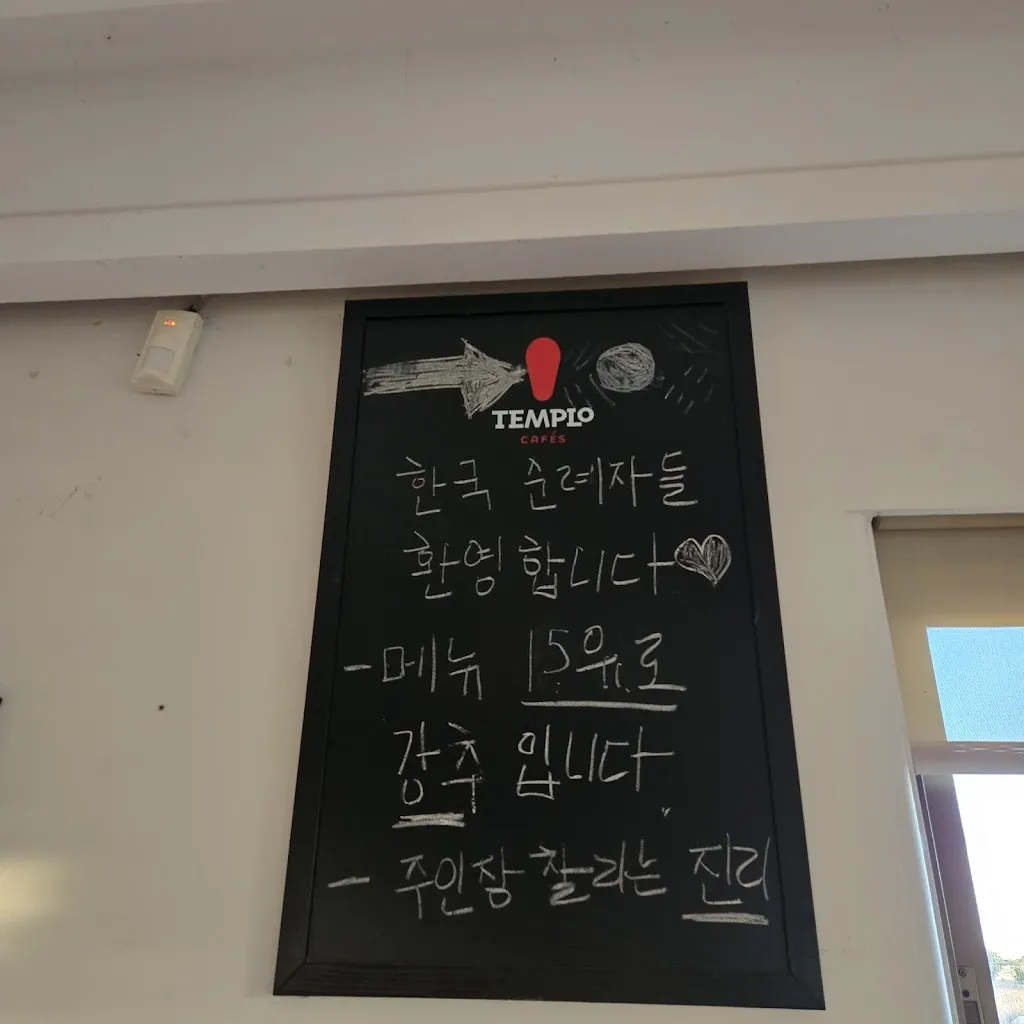 TEMPLO
CAFÉS
한국 순례자들
환영합니다
-메뉴 15유로
강추 입니다
- 주인장 찰라는 진리